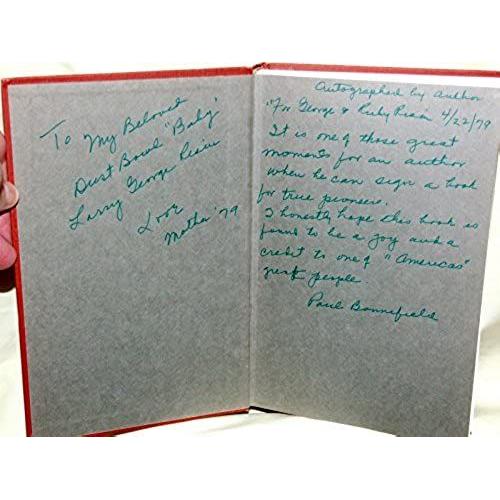 To My Beloved
Dust Bowl "Baby"
Larry George
Love
Mother '79
Autographed by Author
"For George & Ruby 4/22/79
It is one of those great
moments for an author
when he can sign a book
for true pioneers.
I honestly hope this book is
found to be a joy and a
credit to one of "Americas"
great people.
Paul Bonnifield